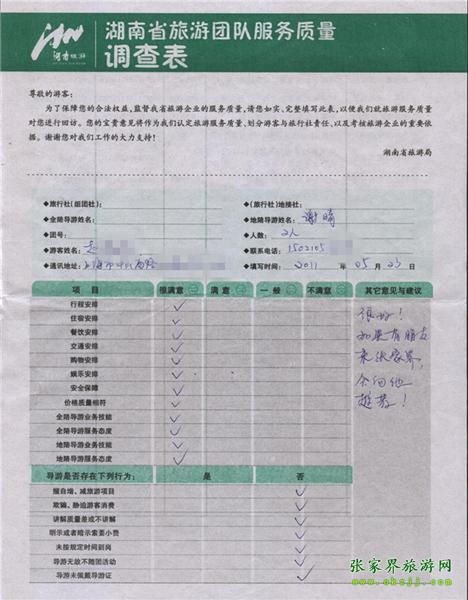 湖南旅游
湖南省旅游团队服务质量
调查表
尊敬的游客：
为了保障您的合法权益，监督我省旅游企业的服务质量，请您如实、完整填写此表，以便我们就旅游服务质量
对您进行回访。您的宝贵意见将作为我们认定旅游服务质量、划分游客与旅行社责任、以及考核旅游企业的重要依
据。谢谢您对我们工作的大力支持！
湖南省旅游局
◆旅行社(组团社)： ◆(旅行社)地接社：
◆全陪导游姓名： ◆地陪导游姓名：谢晴
◆团号： ◆人数：2人
◆游客姓名： ◆联系电话：1502105
◆通讯地址：上海市中山西路 ◆填写时间：2011 年 05 月 23 日
项 目 很满意 满 意 一 般 不满意 其它意见与建议
行程安排 ✓ 很好！
住宿安排 ✓ 如果有朋友
餐饮安排 ✓ 来张家界，
交通安排 ✓ 会向他
购物安排 ✓ 推荐！
娱乐安排 ✓
安全保障 ✓
价格质量相符 ✓
全陪导游业务技能 ✓
全陪导游服务态度 ✓
地陪导游业务技能 ✓
地陪导游服务态度 ✓
导游是否存在下列行为： 是 否
擅自增、减旅游项目 ✓
欺骗、胁迫游客消费 ✓
讲解质量差或不讲解 ✓
明示或者暗示索要小费 ✓
未按规定时间到岗 ✓
导游无故不随团活动 ✓
导游未佩戴导游证 ✓
张家界旅游网
www.okzjj.com